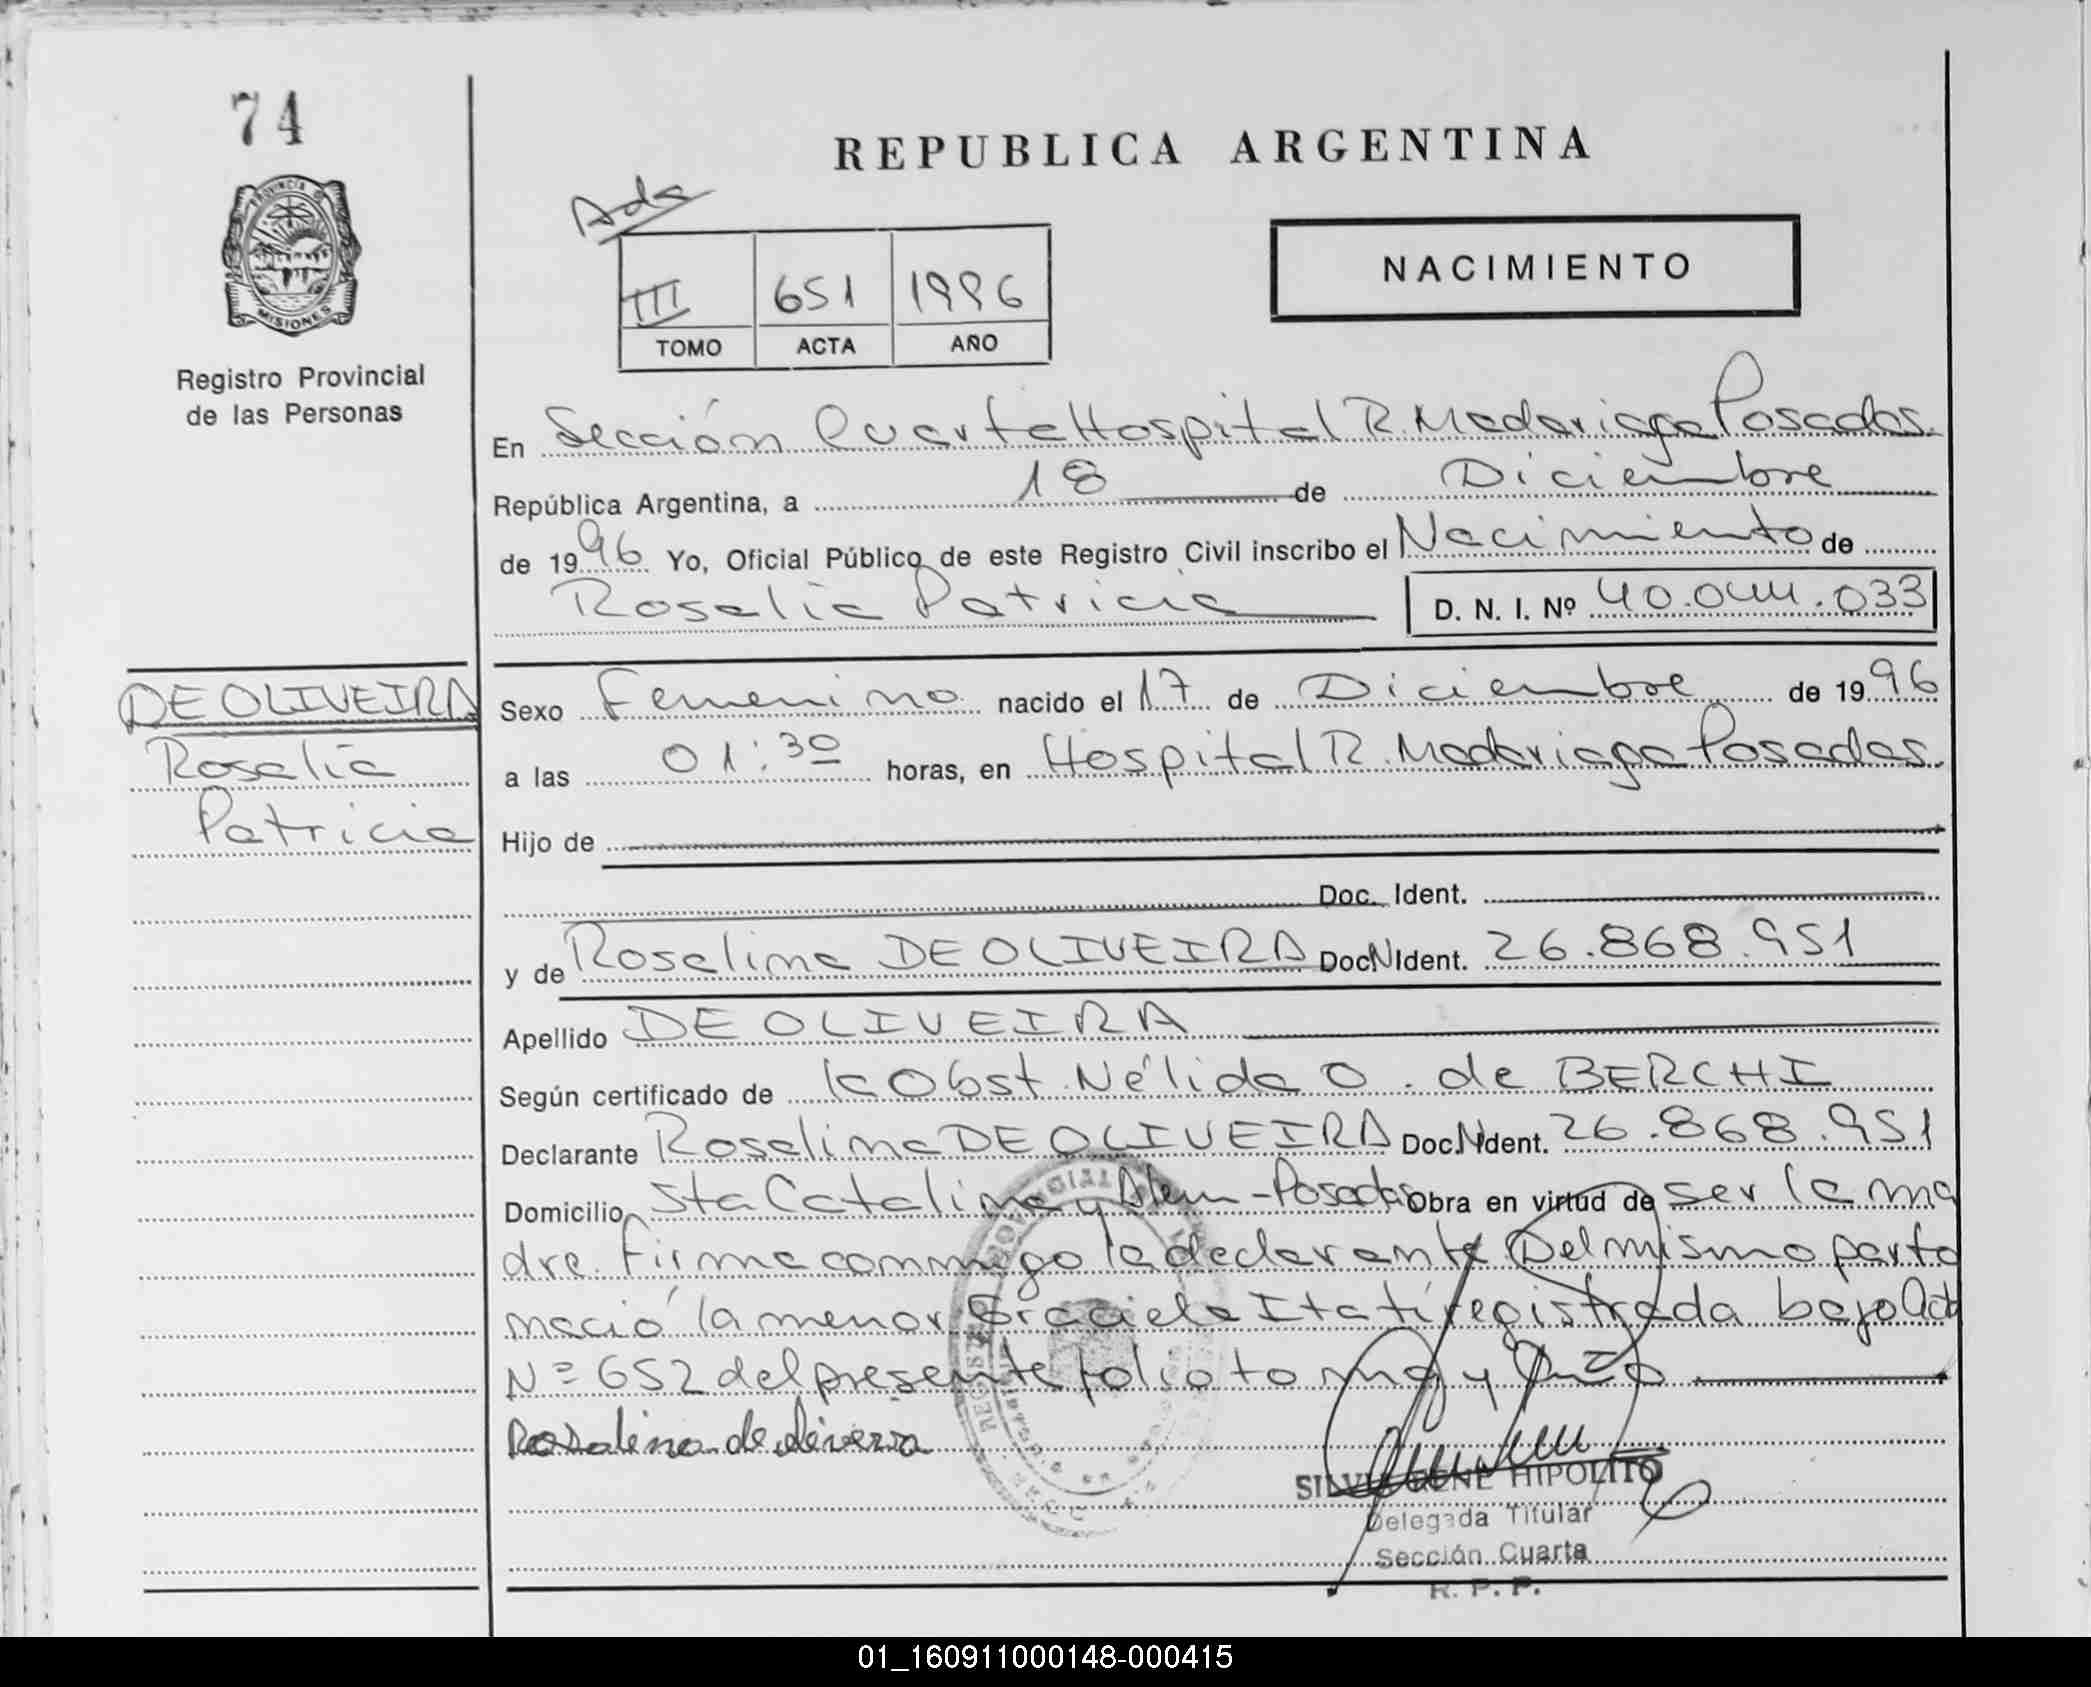 74
REPUBLICA ARGENTINA
PROVINCIA D
MISIONES
Registro Provincial
de las Personas
Ads
III 651 1996
TOMO ACTA AÑO
NACIMIENTO
En Sección Cuarta Hospital R. Madariaga Posadas.
República Argentina, a 18 de Diciembre
de 1996 Yo, Oficial Público de este Registro Civil inscribo el Nacimiento de
Rosalia Patricia D. N. I. Nº 40.044.033
DE OLIVEIRA
Rosalia
Patricia
Sexo Femenino nacido el 17 de Diciembre de 1996
a las 01:30 horas, en Hospital R. Madariaga Posadas.
Hijo de
Doc. Ident.
y de Rosalina DE OLIVEIRA Doc N Ident. 26.868.951
Apellido DE OLIVEIRA
Según certificado de la Obst. Nélida O. de BERCHI
Declarante Rosalina DE OLIVEIRA Doc. N Ident. 26.868.951
Domicilio Sta Catalina y Alem - Posadas Obra en virtud de ser la ma
dre. Firma conmigo la declarante Del mismo parto
nació la menor Graciela Itatí registrada bajo Acta
Nº 652 del presente folio tomo y Año
Rosalina de liveira
SILVIA IRENE HIPOLITO
Delegada Titular
Sección Cuarta
R. P. P.
01_160911000148-000415